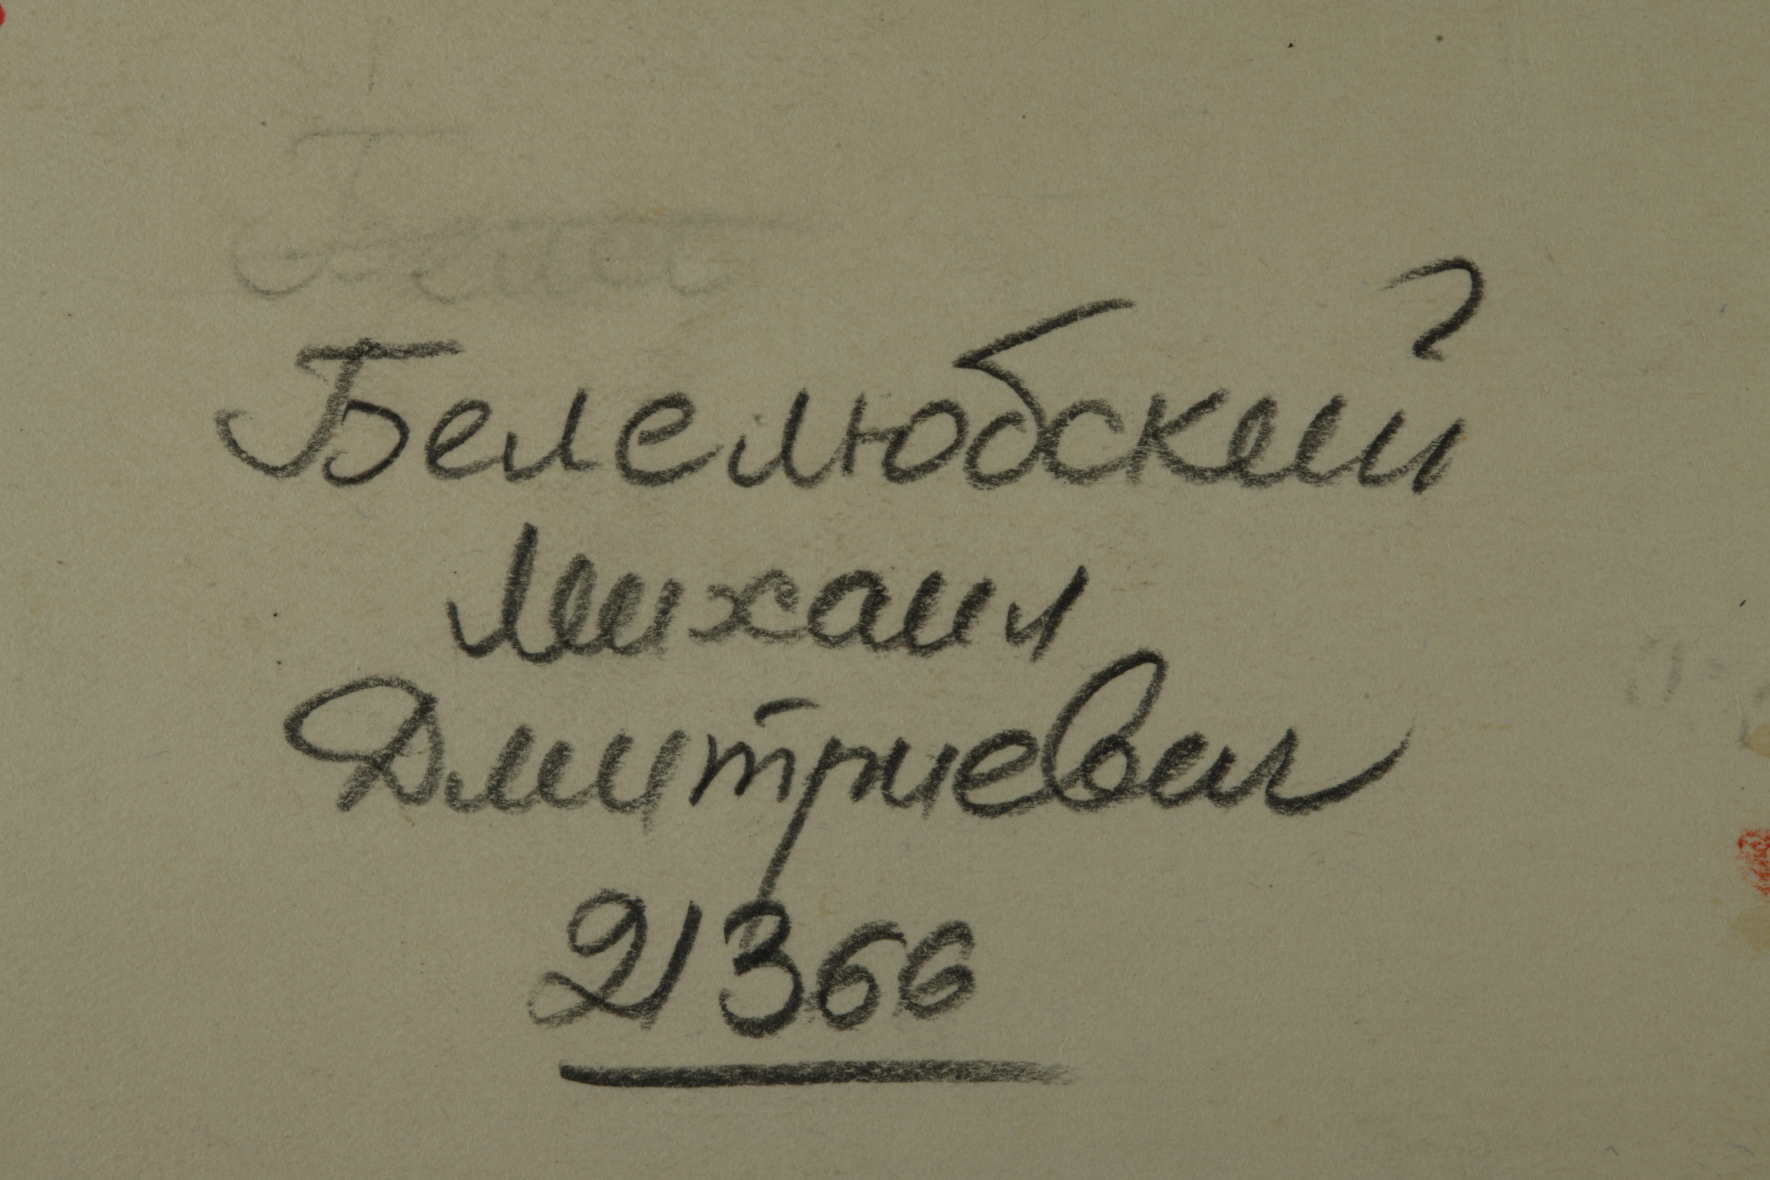 Белелюбский
Михаил
Дмитриевич
21366